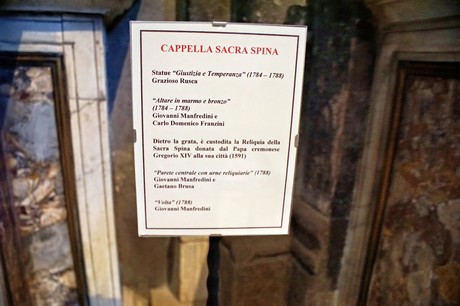 CAPPELLA SACRA SPINA
Statue "Giustizia e Temperanza" (1784 – 1788)
Grazioso Rusca
"Altare in marmo e bronzo"
(1784 – 1788)
Giovanni Manfredini e
Carlo Domenico Franzini
Dietro la grata, è custodita la Reliquia della
Sacra Spina donata dal Papa cremonese
Gregorio XIV alla sua città (1591)
"Parete centrale con urne reliquiarie" (1788)
Giovanni Manfredini e
Gaetano Brusa
"Volta" (1788)
Giovanni Manfredini